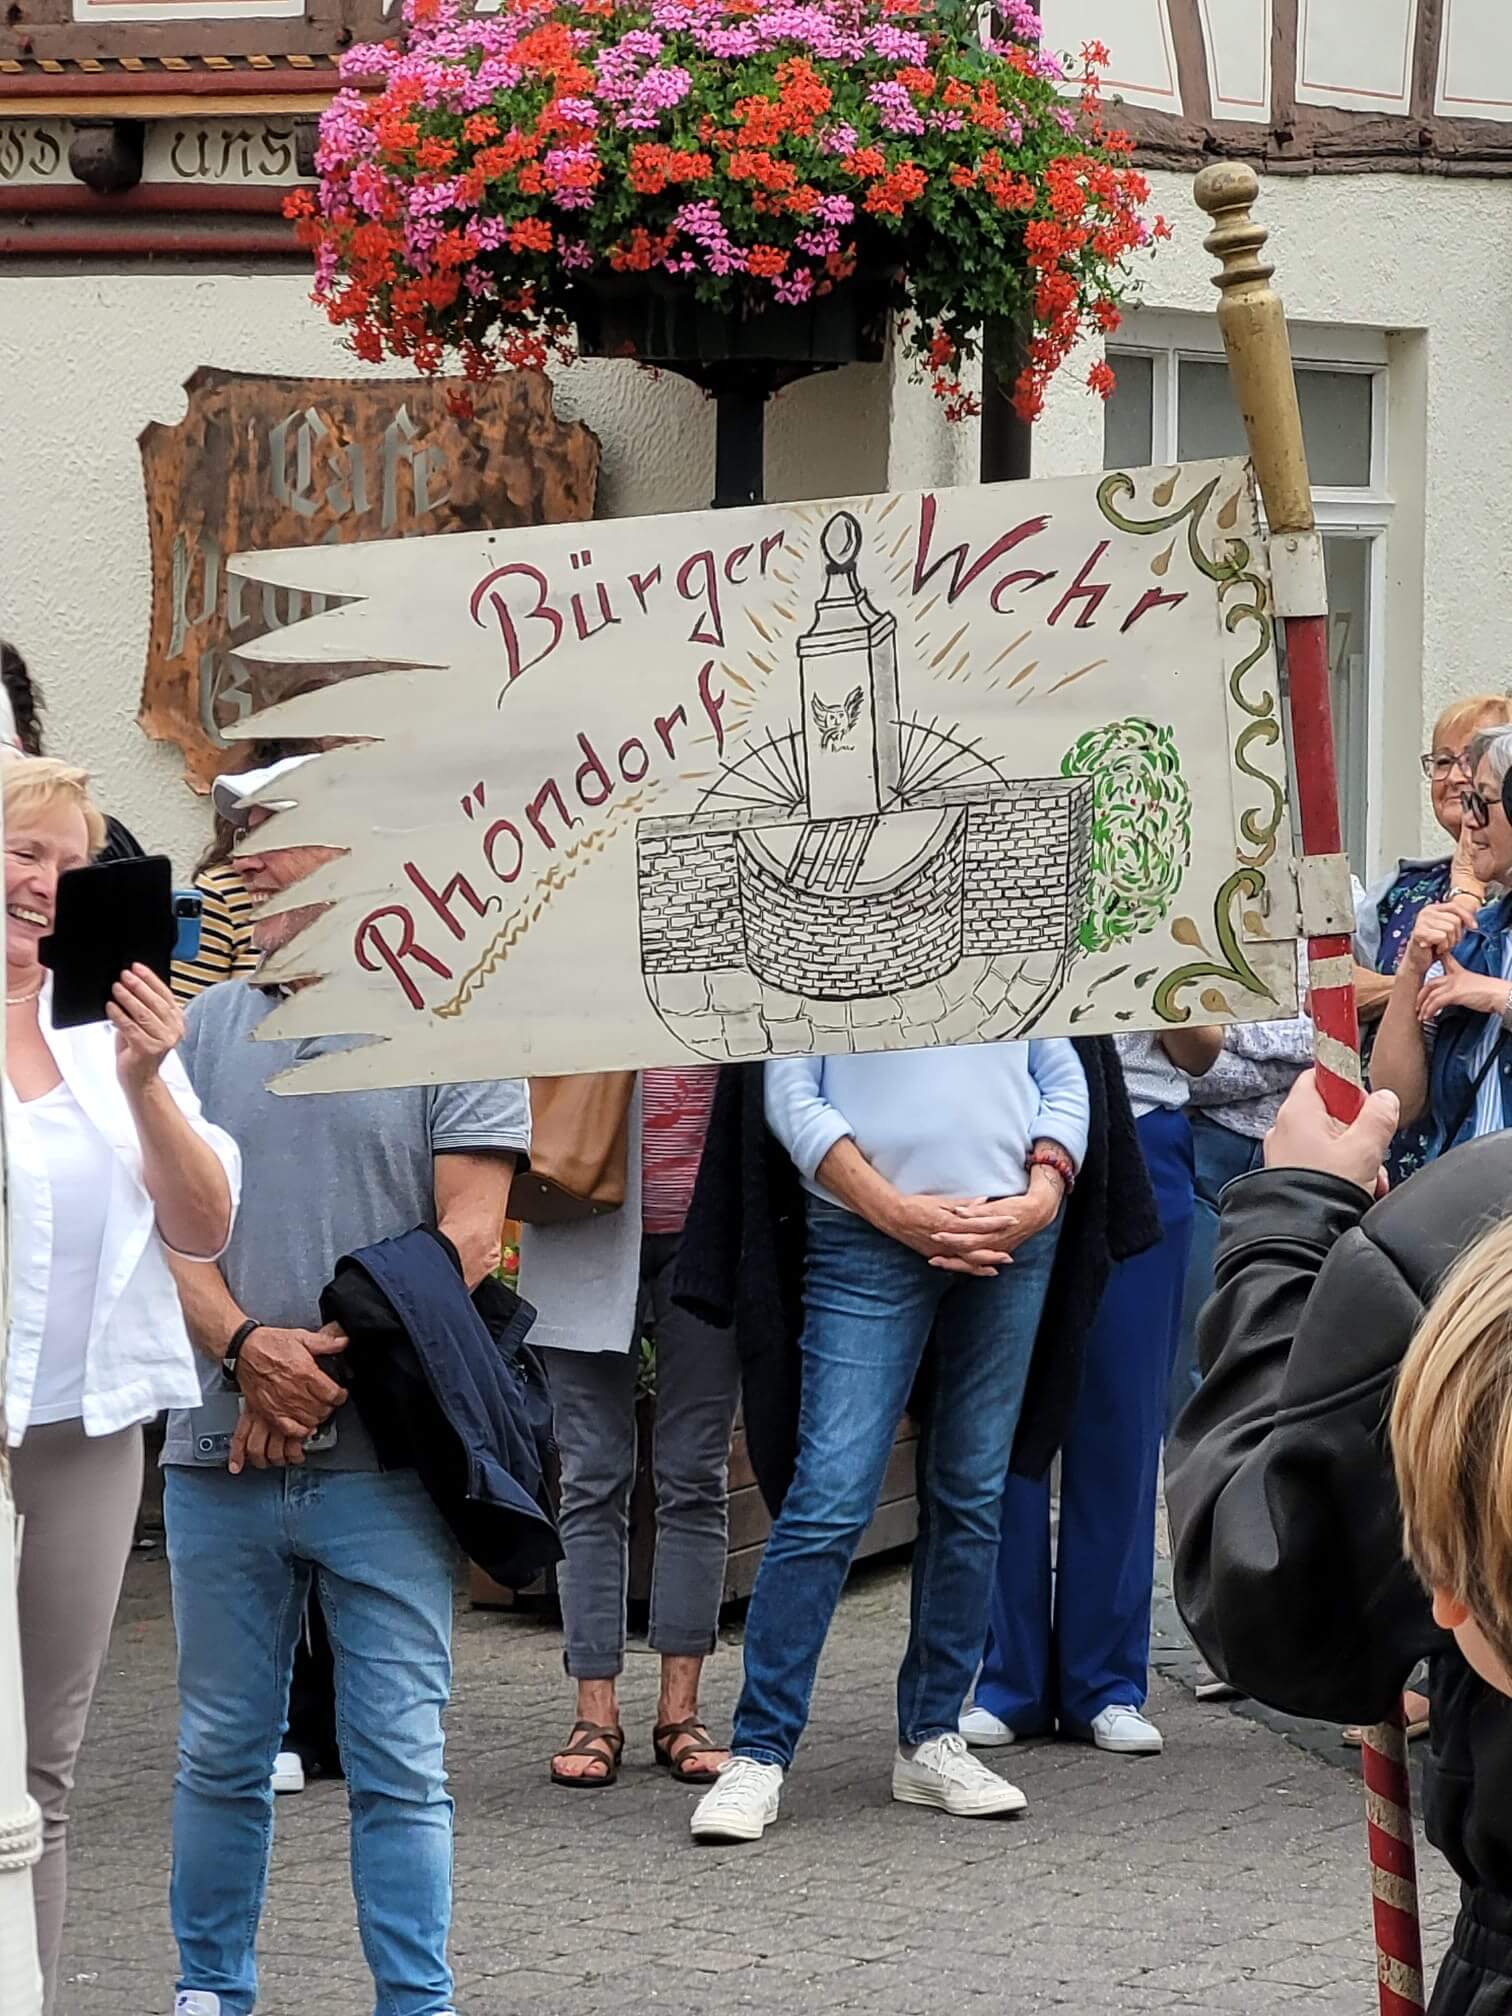 uns
Cafe
Bürger Wehr
Rhöndorf